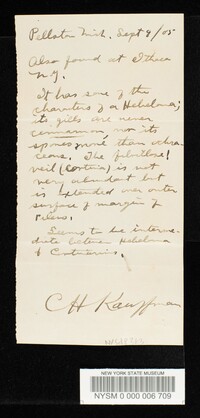 Pellston Mich. Sept 9/05
Also found at Ithaca
N.Y.
It has some of the
characters of a Hebeloma;
its gills are never
cinnamon, nor its
spores more than ochra-
ceous. The fibrillose
veil (Cortina) is not
very abundant but
is extended over outer
surface of margin of
Pileus.
Seems to be interme-
diate between Hebeloma
& Cortinarius.
C H Kauffman
NEW YORK STATE MUSEUM
NYSM 0 000 006 709